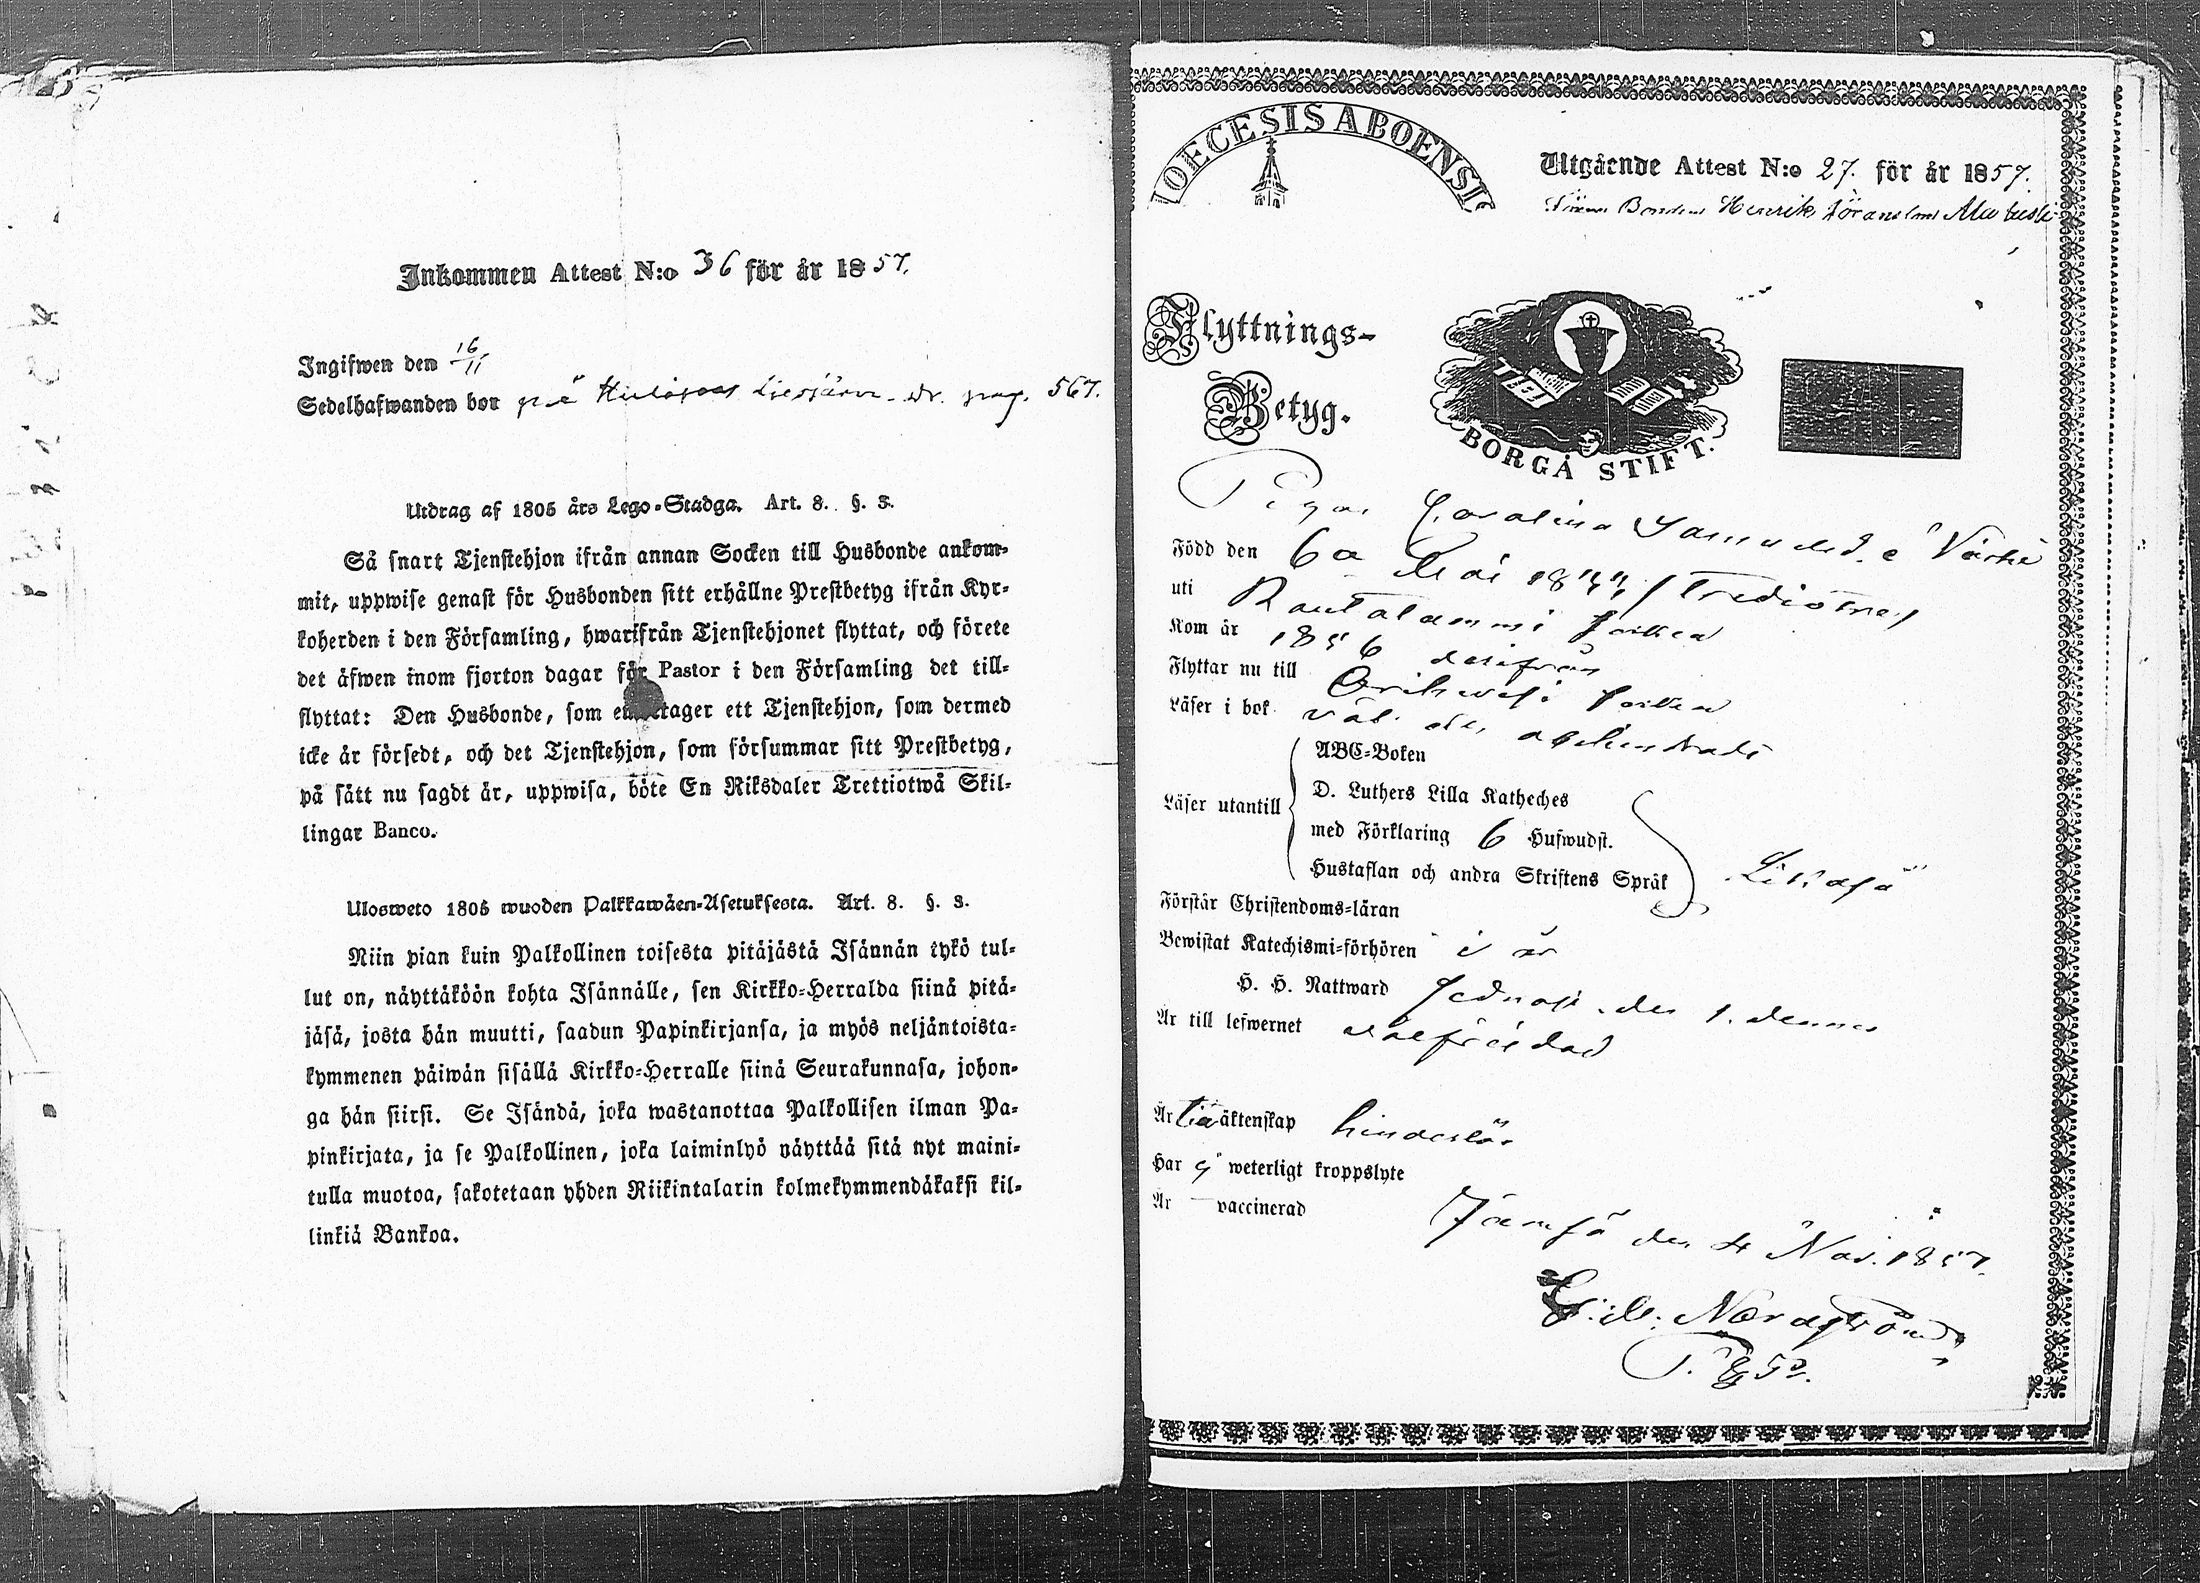 Inkommen Attest N:o 36 för år 1857.
Ingifwen den 16/11
Sedelhafwanden bor på Liesjärvi pag. 567.
Utdrag af 1805 års Lego-Stadga. Art. 8. §. 3.
Så snart Tjenstehjon ifrån annan Socken till Husbonde ankom-
mit, uppwise genast för Husbonden sitt erhållne Prestbetyg ifrån Kyr-
koherden i den Församling, hwarifrån Tjenstehjonet flyttat, och förete
det äfwen inom fjorton dagar för Pastor i den Församling det till-
flyttat: Den Husbonde, som emottager ett Tjenstehjon, som dermed
icke är försedt, och det Tjenstehjon, som försummar sitt Prestbetyg,
på sätt nu sagdt är, uppwisa, böte En Riksdaler Trettiotwå Skil-
lingar Banco.
Ulosweto 1805 wuoden Palkkawäen-Asetuksesta. Art. 8. §. 3.
Niin pian kuin Palkollinen toisesta pitäjästä Isännän tykö tul-
lut on, näyttäköön kohta Isännälle, sen Kirkko-Herralda siinä pitä-
jäsä, josta hän muutti, saadun Papinkirjansa, ja myös neljäntoista-
kymmenen päiwän sisällä Kirkko-Herralle siinä Seurakunnasa, johon-
ga hän siirsi. Se Isändä, joka wastanottaa Palkollisen ilman Pa-
pinkirjata, ja se Palkollinen, joka laiminlyö näyttää sitä nyt maini-
tulla muotoa, sakotetaan yhden Riikintalarin kolmekymmendäkaksi kil-
linkiä Bankoa.
DIOECESIS ABOENSIS
Utgående Attest N:o 27. för år 1857.
Bonden Henrik Göransson
Flyttnings-
Betyg.
BORGÅ STIFT.
Pigan Carolina Samuelsd.
Född den 6 Maj 18
uti Rautalammi socken
Kom år 1856 derifrån
Flyttar nu till Orihvesi socken
Läser i bok väl
ABC-Boken
Läser utantill
D. Luthers Lilla Katheches
med Förklaring 6 Hufwudst.
Hustaflan och andra Skriftens Språk
Likaså
Förstår Christendoms-läran
Bewistat Katechismi-förhören i år
H. H. Nattward sednast den 1. dennes
Är till lefwernet välfrejdad
Är till äktenskap hinderlös
Har ej weterligt kroppslyte
Är vaccinerad
Jämsä den 4 Nov. 1857.
Nordström